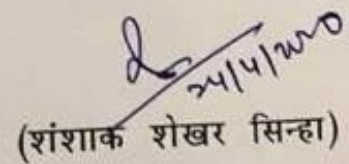 24/4/2020
(शंशाक शेखर सिन्हा)